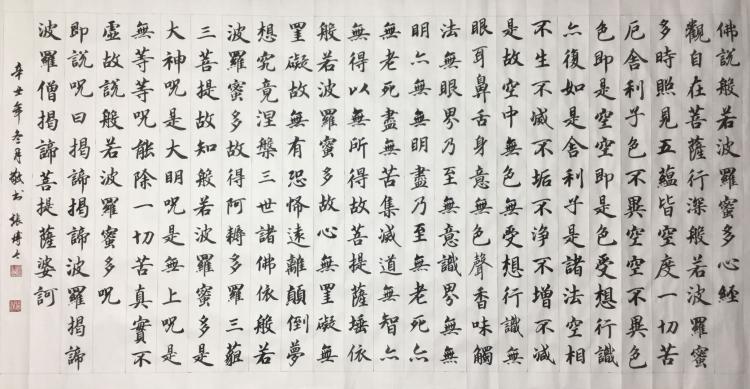 佛說般若波羅蜜多心經
觀自在菩薩行深般若波羅蜜
多時照見五蘊皆空度一切苦
厄舍利子色不異空空不異色
色即是空空即是色受想行識
亦復如是舍利子是諸法空相
不生不滅不垢不淨不增不減
是故空中無色無受想行識無
眼耳鼻舌身意無色聲香味觸
法無眼界乃至無意識界無無
明亦無無明盡乃至無老死亦
無老死盡無苦集滅道無智亦
無得以無所得故菩提薩埵依
般若波羅蜜多故心無罣礙無
罣礙故無有恐怖遠離顛倒夢
想究竟涅槃三世諸佛依般若
波羅蜜多故得阿耨多羅三藐
三菩提故知般若波羅蜜多是
大神呪是大明呪是無上呪是
無等等呪能除一切苦真實不
虛故說般若波羅蜜多呪
即說呪曰揭諦揭諦波羅揭諦
波羅僧揭諦菩提薩婆訶
辛丑年冬月敬書張博